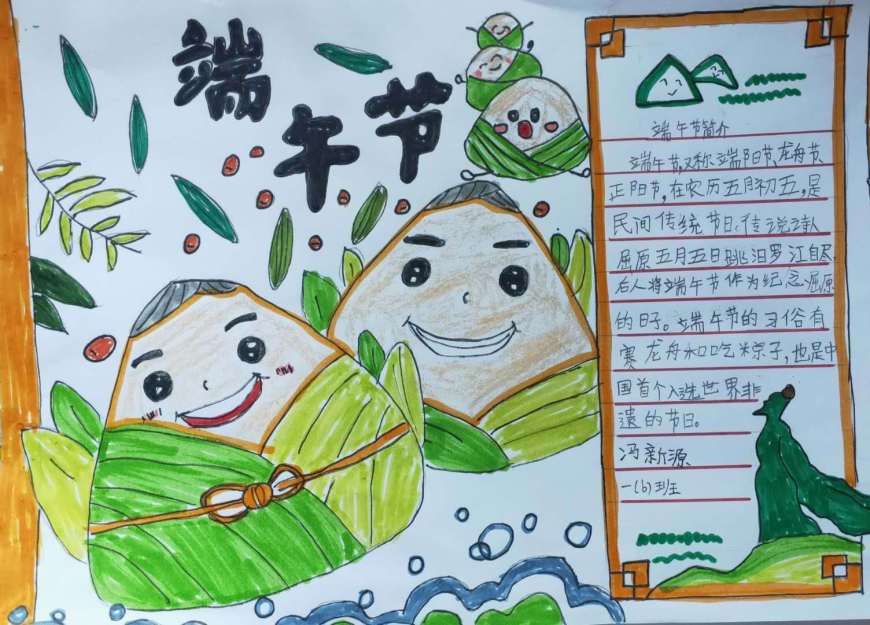 端
午
节
端午节简介
端午节,又称端阳节、龙舟节、
正阳节,在农历五月初五,是
民间传统节日,传说诗人
屈原五月五日跳汨罗江自尽
后人将端午节作为纪念屈原
的日子。端午节的习俗有
赛龙舟和吃粽子,也是中
国首个入选世界非
遗的节日。
冯新源
一(6)班